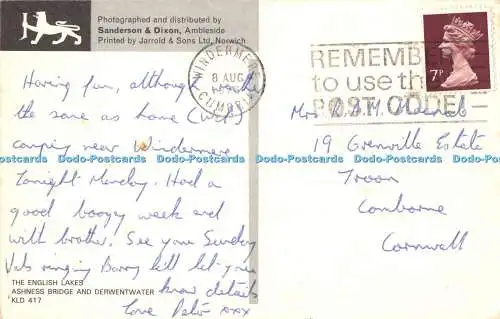 Photographed and distributed by
Sanderson & Dixon, Ambleside
Printed by Jarrold & Sons Ltd, Norwich
WINDERMERE
8 AUG
CUMBRIA
REMEMBER
to use the
POST CODE!
7P
Having fun, although
the same as home (Wet)
camping near Windermere
Tonight Monday. Had a
good boozy week end
with brother. See you Sunday
ringing Barry will let you
know details
Love Peter xxx
Mrs
19 Grenville Estate
Troon
Camborne
Cornwall
Postcards Dodo-Postcards Dodo-Postcards Dodo-Postcards Dodo-Postcards Dodo-Postcards
THE ENGLISH LAKES
ASHNESS BRIDGE AND DERWENTWATER
KLD 417